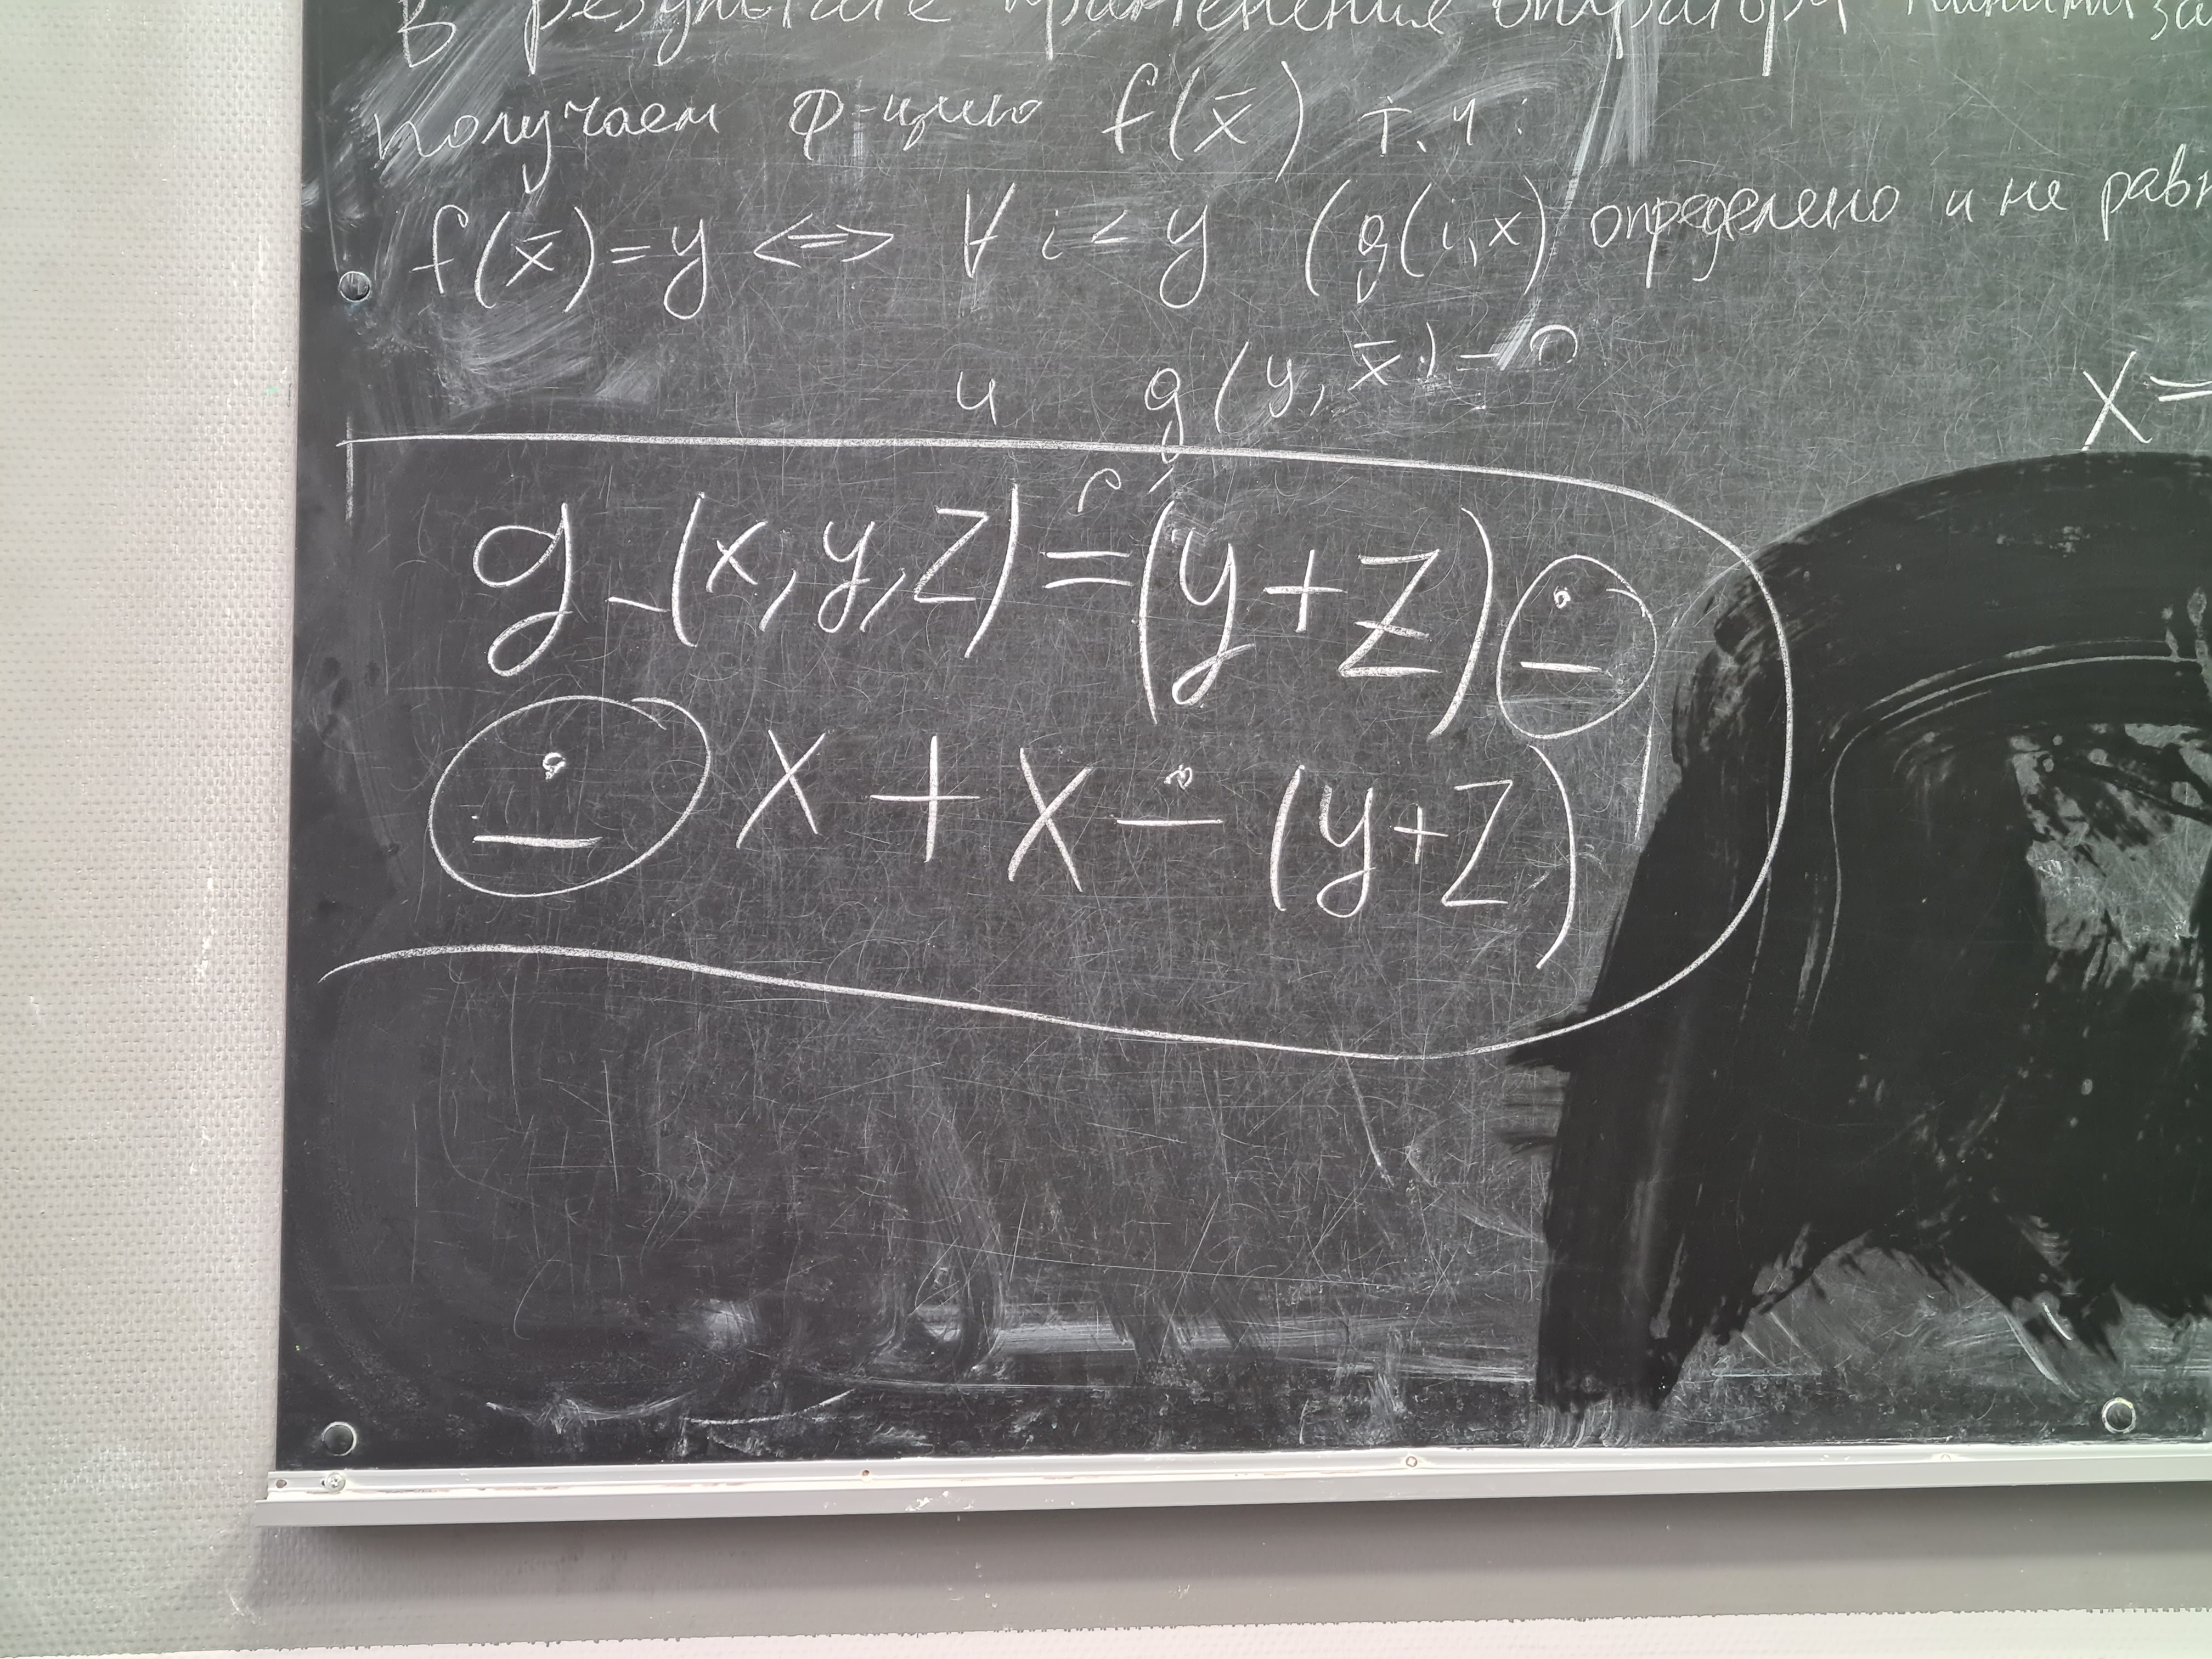 В результате применение оператора
получаем ф-цию f(x̄) т.ч:
f(x̄)=y <=> ∀ i < y (g(i,x) определено и не
и g(y, x̄) = 0
x =
g_(x,y,z) = (y+z) ∸
∸ x + x ∸ (y+z)